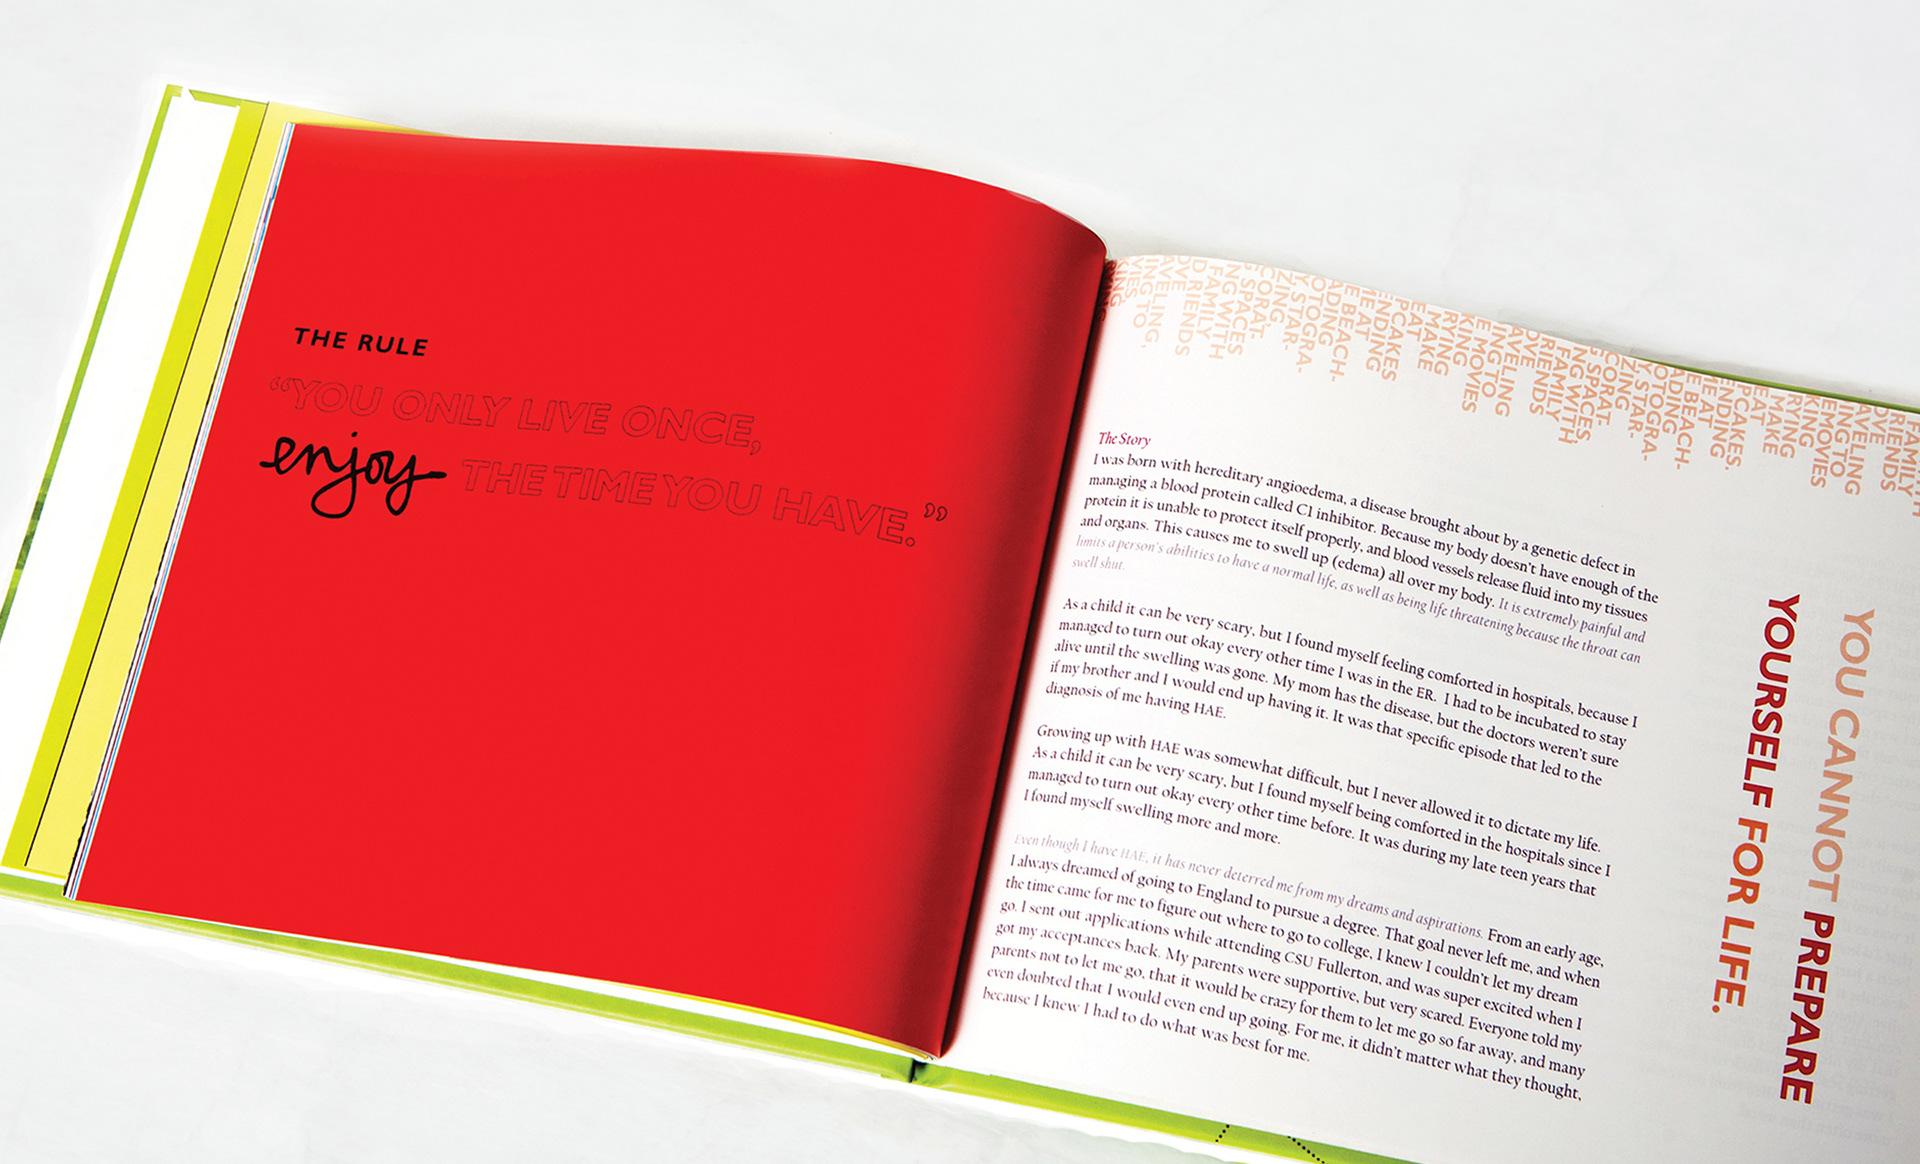 THE RULE
“YOU ONLY LIVE ONCE,
enjoy THE TIME YOU HAVE.”
The Story
I was born with hereditary angioedema, a disease brought about by a genetic defect in
managing a blood protein called C1 inhibitor. Because my body doesn't have enough of the
protein it is unable to protect itself properly, and blood vessels release fluid into my tissues
and organs. This causes me to swell up (edema) all over my body. It is extremely painful and
limits a person's abilities to have a normal life, as well as being life threatening because the throat can
swell shut.
As a child it can be very scary, but I found myself feeling comforted in hospitals, because I
managed to turn out okay every other time I was in the ER. I had to be incubated to stay
alive until the swelling was gone. My mom has the disease, but the doctors weren't sure
if my brother and I would end up having it. It was that specific episode that led to the
diagnosis of me having HAE.
Growing up with HAE was somewhat difficult, but I never allowed it to dictate my life.
As a child it can be very scary, but I found myself being comforted in the hospitals since I
managed to turn out okay every other time before. It was during my late teen years that
I found myself swelling more and more.
Even though I have HAE, it has never deterred me from my dreams and aspirations. From an early age,
I always dreamed of going to England to pursue a degree. That goal never left me, and when
the time came for me to figure out where to go to college, I knew I couldn't let my dream
go. I sent out applications while attending CSU Fullerton, and was super excited when I
got my acceptances back. My parents were supportive, but very scared. Everyone told my
parents not to let me go, that it would be crazy for them to let me go so far away, and many
even doubted that I would even end up going. For me, it didn't matter what they thought,
because I knew I had to do what was best for me.
YOU CANNOT PREPARE
YOURSELF FOR LIFE.